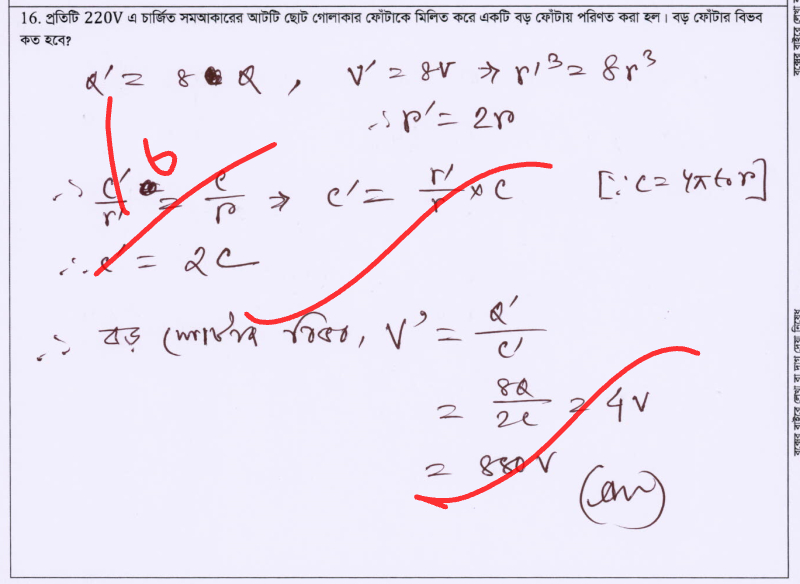 16. প্রতিটি 220V এ চার্জিত সমআকারের আটটি ছোট গোলাকার ফোঁটাকে মিলিত করে একটি বড় ফোঁটায় পরিণত করা হল। বড় ফোঁটার বিভব
কত হবে?
Q' = 8 Q , V' = 8V ⇒ r'³ = 8r³
∴ r' = 2r
6
∴ C'/r' = C/r ⇒ C' = r'/r × C [∵ C = 4π ε₀ r]
∴ C' = 2C
∴ বড় ফোটার বিভব, V' = Q'/C'
= 8Q/2C = 4V
= 880V (Ans)